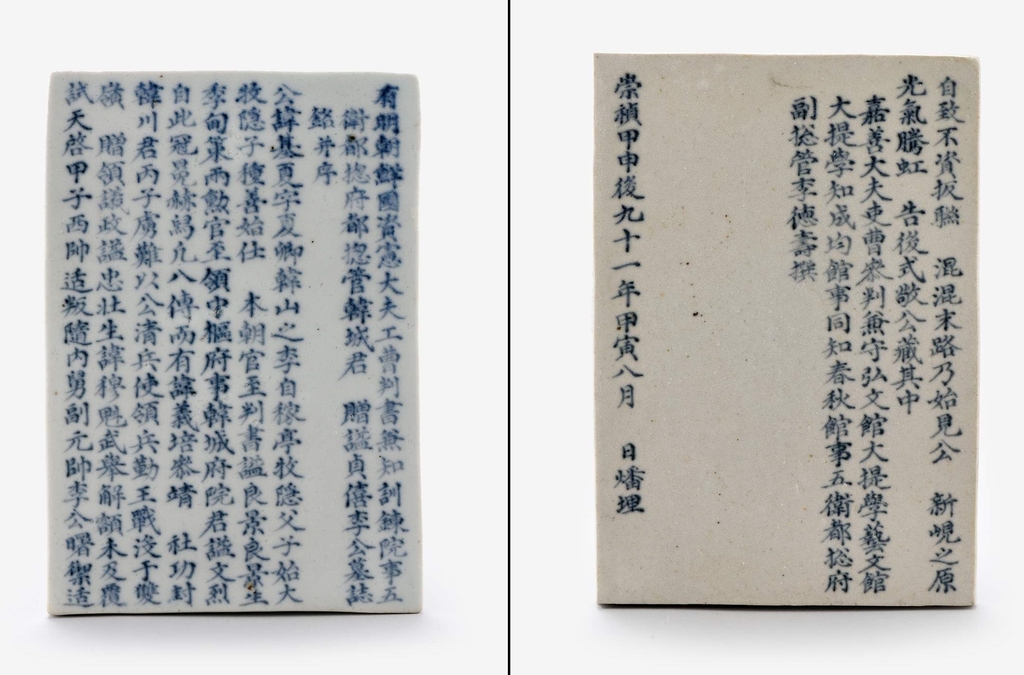 有明朝鮮國資憲大夫工曹判書兼知訓鍊院事五
衛都捴府都捴管韓城君 贈謚貞僖李公墓誌
銘并序
公諱基夏字夏卿韓山之李自稼亭牧隱父子始大
牧隱子種善始仕 本朝官至判書謚良景良景生
季甸策兩勳官至領中樞府事韓城府院君謚文烈
自此冠冕赫舄凢八傳而有諱義培叅靖 社功封
韓川君丙子虜難以公清兵使領兵勤王戰沒于雙
嶺 贈領議政謚忠壯生諱穆魁武舉解額未及覆
試天啓甲子西帥适叛隨內舅副元帥李公曙禦适
自致不資扳聯 混混末路乃始見公 新峴之原
光氣騰虹 告後式敬公藏其中
嘉善大夫吏曹叅判兼守弘文館大提學藝文館
大提學知成均館事同知春秋館事五衛都捴府
副捴管李德壽撰
崇禎甲申後九十一年甲寅八月 日燔埋